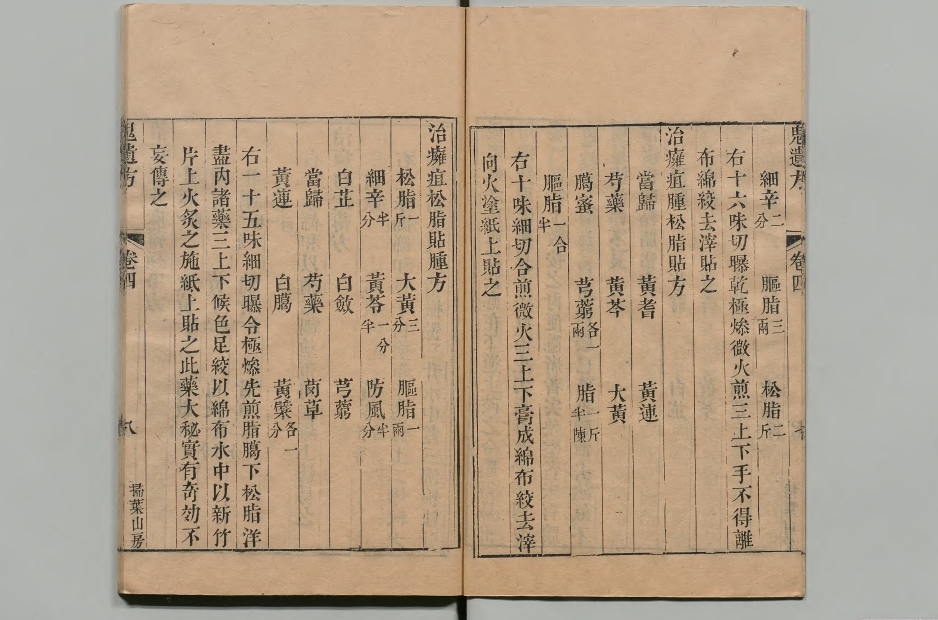 鬼遺方 卷四 七
細辛二分 䐈脂三兩 松脂二斤
右十六味切曝乾極燥微火煎三上下手不得離
布綿絞去滓貼之
治癰疽腫松脂貼方
當歸 黃耆 黃連
芍藥 黃芩 大黃
臈蜜 芎藭各一兩 脂一斤半陳
䐈脂一合半
右十味細切合煎微火三上下膏成綿布絞去滓
向火塗紙上貼之
治癰疽松脂貼腫方
松脂一斤 大黃三分 䐈脂一兩
細辛半分 黃芩一分半 防風半分
白芷 白斂 芎藭
當歸 芍藥 䒽草
黃連 白臈 黃檗各一分
右一十五味細切曝令極燥先煎脂臈下松脂洋
盡內諸藥三上下候色足絞以綿布水中以新竹
片上火炙之施紙上貼之此藥大秘實有奇効不
妄傳之
鬼遺方 卷四 八 掃葉山房